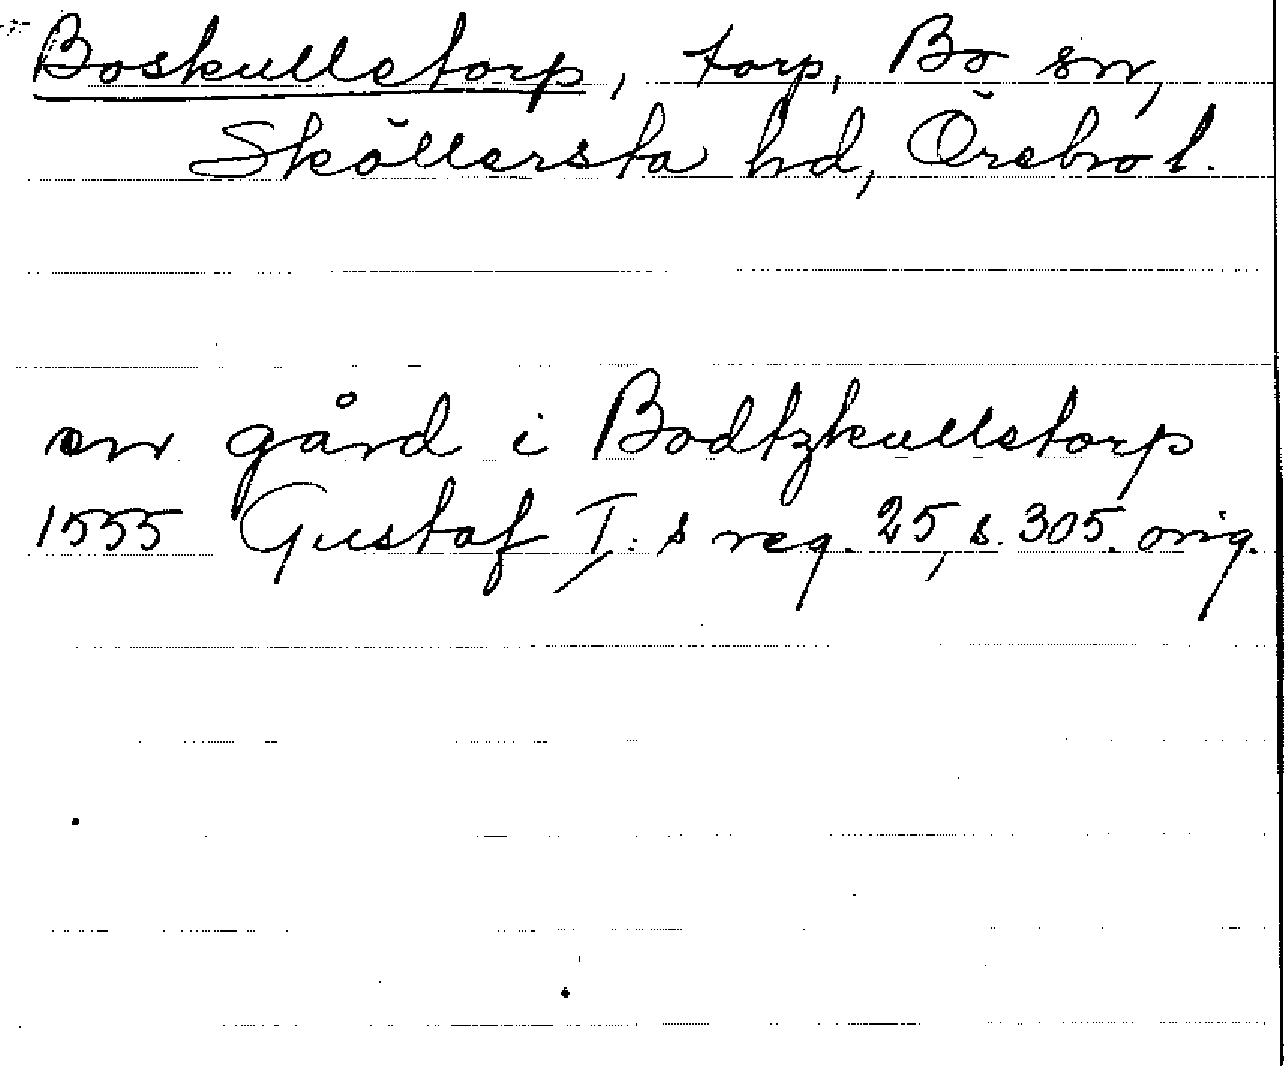 Boskulletorp, torp, Bo sn,
Sköllersta hd, Örebro l.
en gård i Bodtzkulletorp
1555 Gustaf I:s reg. 25, s. 305. orig.